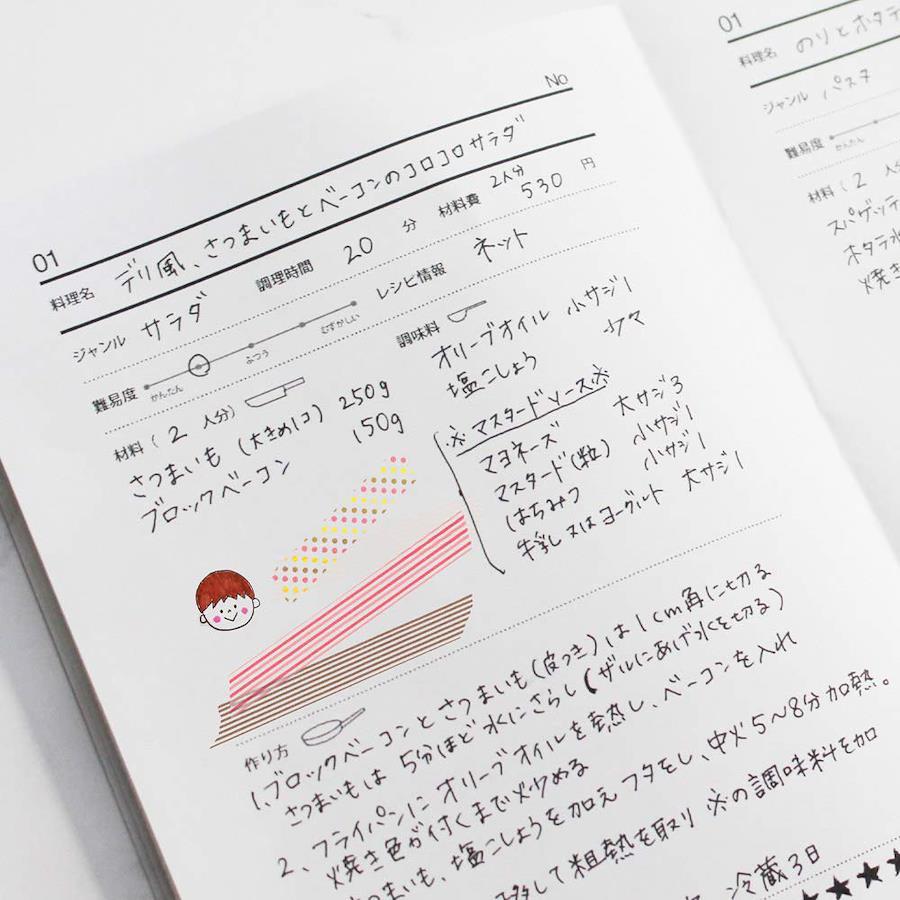 No
01
料理名 デリ風、さつまいもとベーコンのコロコロサラダ
ジャンル サラダ 調理時間 20 分 材料費 2人分 530 円
難易度 かんたん ふつう むずかしい レシピ情報 ネット
材料 ( 2 人分)
さつまいも (大きめ1コ) 250g
ブロックベーコン 150g
調味料
オリーブオイル 小サジ1
塩こしょう 少々
※マスタードソース※
マヨネーズ 大サジ3
マスタード(粒) 小サジ1
はちみつ 小サジ1
牛乳又はヨーグルト 大サジ1
作り方
1.ブロックベーコンとさつまいも(皮つき)は1cm角に切る
さつまいもは5分ほど水にさらし(ザルにあげ水を切る)
2、フライパンにオリーブオイルを熱し、ベーコンを入れ
焼き色が付くまで炒める
さつまいも、塩こしょうを加えフタをし、中火5〜8分加熱。
移して粗熱を取り※の調味料を加
冷蔵3日
★★★★
01
料理名 のりとホタテ
ジャンル パスタ
難易度 かんたん
材料 ( 2 人分
スパゲッティ
ホタテ水
焼き